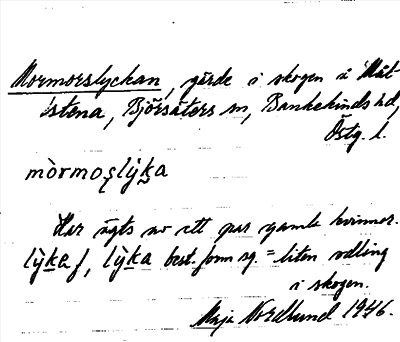 Mormorslyckan, gärde i skogen å Måt-
stena, Björsäters sn, Bankekinds hd,
Östg. l.
mòrmoʂlýka
Har ägts av ett par gamla kvinnor.
lýka f, lýka best. form sg. = liten odling
i skogen.
Maja Nordlund 1946.